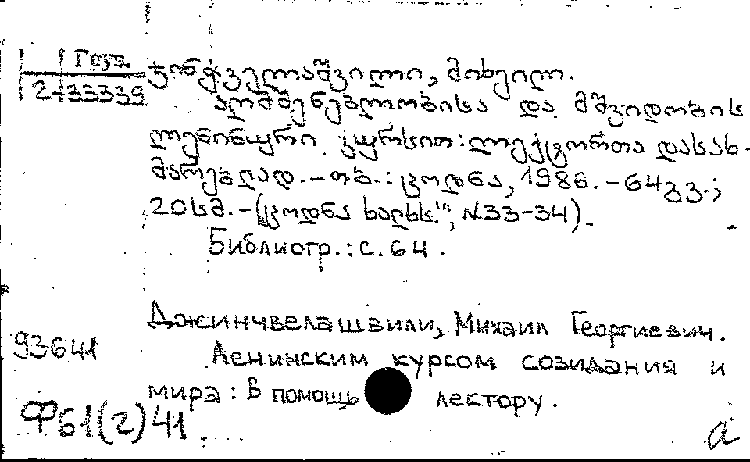 Груз.
2-33339
ჯინჭველაშვილი, მიხეილ.
აღმშენებლობისა და მშვიდობის
ლენინური კურსით: ლექტორთა დასახ-
მარებლად. – თბ.: ცოდნა, 1986. – 64 გვ.;
20 სმ. – („ცოდნა ხალხს", N33-34).
Библиогр.: с. 64.
Джинчвелашвили, Михаил Георгиевич.
93641
Ленинским курсом созидания и
мира: В помощь лектору.
Ф61(2)41
а